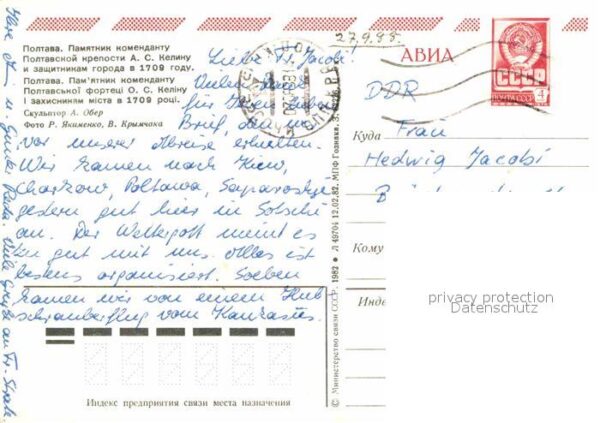 27.9.88.
Полтава. Памятник коменданту
Полтавской крепости А. С. Келину
и защитникам города в 1709 году.
Полтава. Пам'ятник коменданту
Полтавської фортеці О. С. Келіну
і захисникам міста в 1709 році.
Скульптор А. Обер
Фото Р. Якименко, В. Крымчака
Liebe Fr. Jacobi!
Vielen Dank
für Ihren
Brief,
vor unserer Abreise erhielten.
Wir kamen nach Kiew,
Charkow, Poltawa, Saporoshje
gestern gut hier in Sotschi
an. Der Wettergott meint es
gut mit uns. Alles ist
bestens organisiert. Soeben
kamen wir von einem Hub
schrauberflug vom Kaukasus.
u. Günter
Viele Grüße an Fr.
Индекс предприятия связи места назначения
© Министерство связи СССР. 1982 • Л 49704 12.02.82. МПФ Гознака.
АВИА
СССР
ПОЧТА СССР
4
DDR
Куда
Frau
Hedwig Jacobi
Кому
Инде
privacy protection
Datenschutz